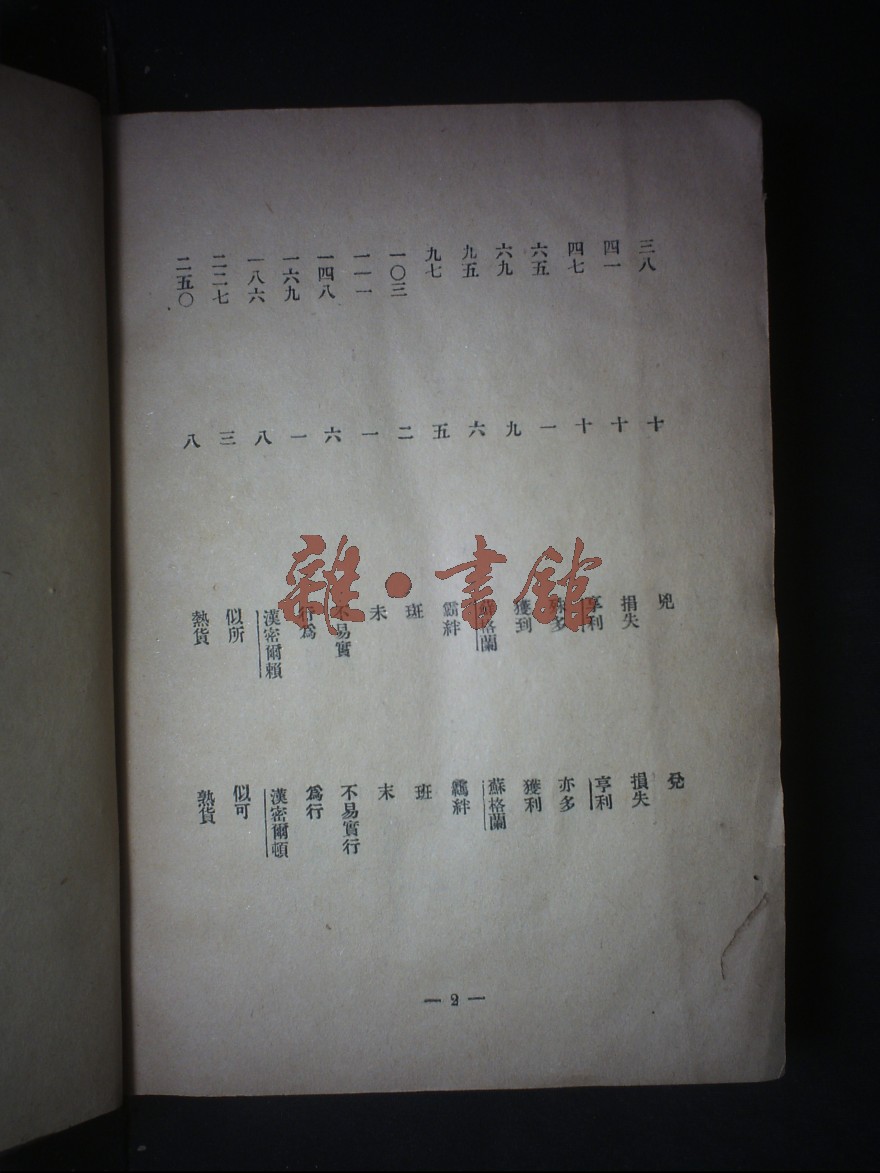 三八 十 兇 兌
四一 十 捐失 損失
四七 十 享利 亨利
六五 一 多 亦多
六九 九 獲到 獲利
九五 六 格蘭 蘇格蘭
九七 五 霸絆 羈絆
一〇三 二 斑 班
一一一 一 未 末
一四八 六 不易實 不易實行
一六九 一 行為 為行
一八六 八 漢密爾賴 漢密爾頓
二二七 三 似所 似可
二五〇 八 熱貨 熟貨
— 2 —
雜·書館